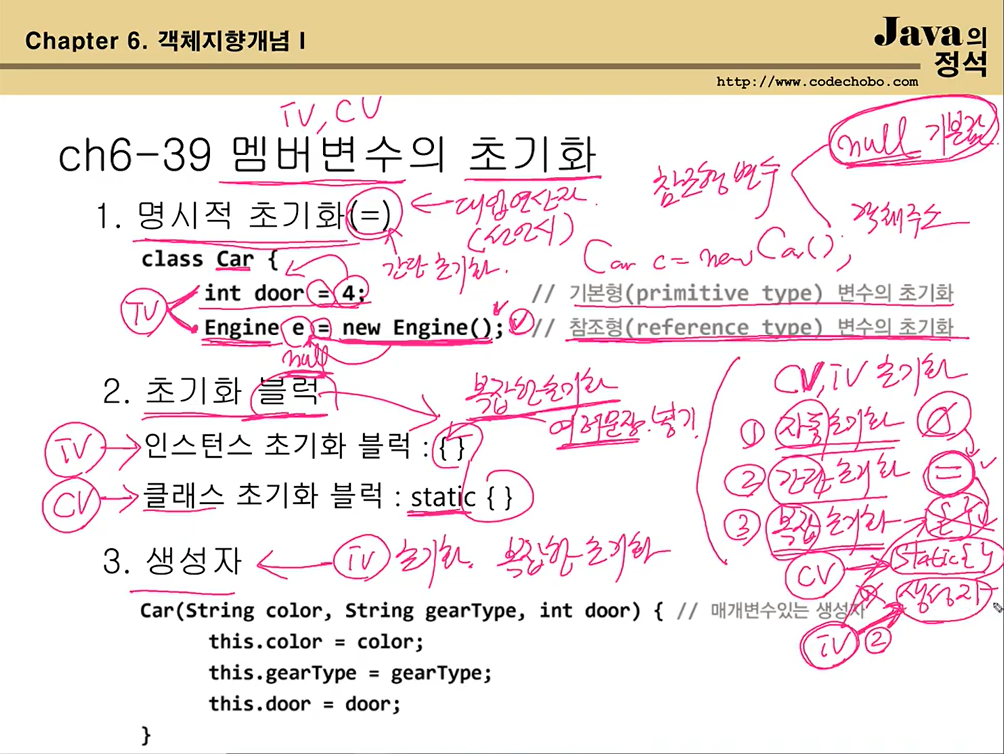 Chapter 6. 객체지향개념 I
Java의
정석
http://www.codechobo.com
IV, CV
ch6-39 멤버변수의 초기화
null 기본값
참조형 변수
객체주소
1. 명시적 초기화(=)
대입연산자
(선언시)
간단 초기화.
Car c = new Car();
class Car {
IV
int door = 4; // 기본형(primitive type) 변수의 초기화
Engine e = new Engine(); // 참조형(reference type) 변수의 초기화
null
2. 초기화 블럭
복잡한 초기화
여러문장 넣기
IV 인스턴스 초기화 블럭 : { }
CV 클래스 초기화 블럭 : static { }
CV, IV 초기화
① 자동초기화 0
② 간단초기화 =
③ 복잡초기화 { }
CV static{ }
IV ② 생성자
3. 생성자
IV 초기화. 복잡한 초기화
Car(String color, String gearType, int door) { // 매개변수있는 생성자
this.color = color;
this.gearType = gearType;
this.door = door;
}